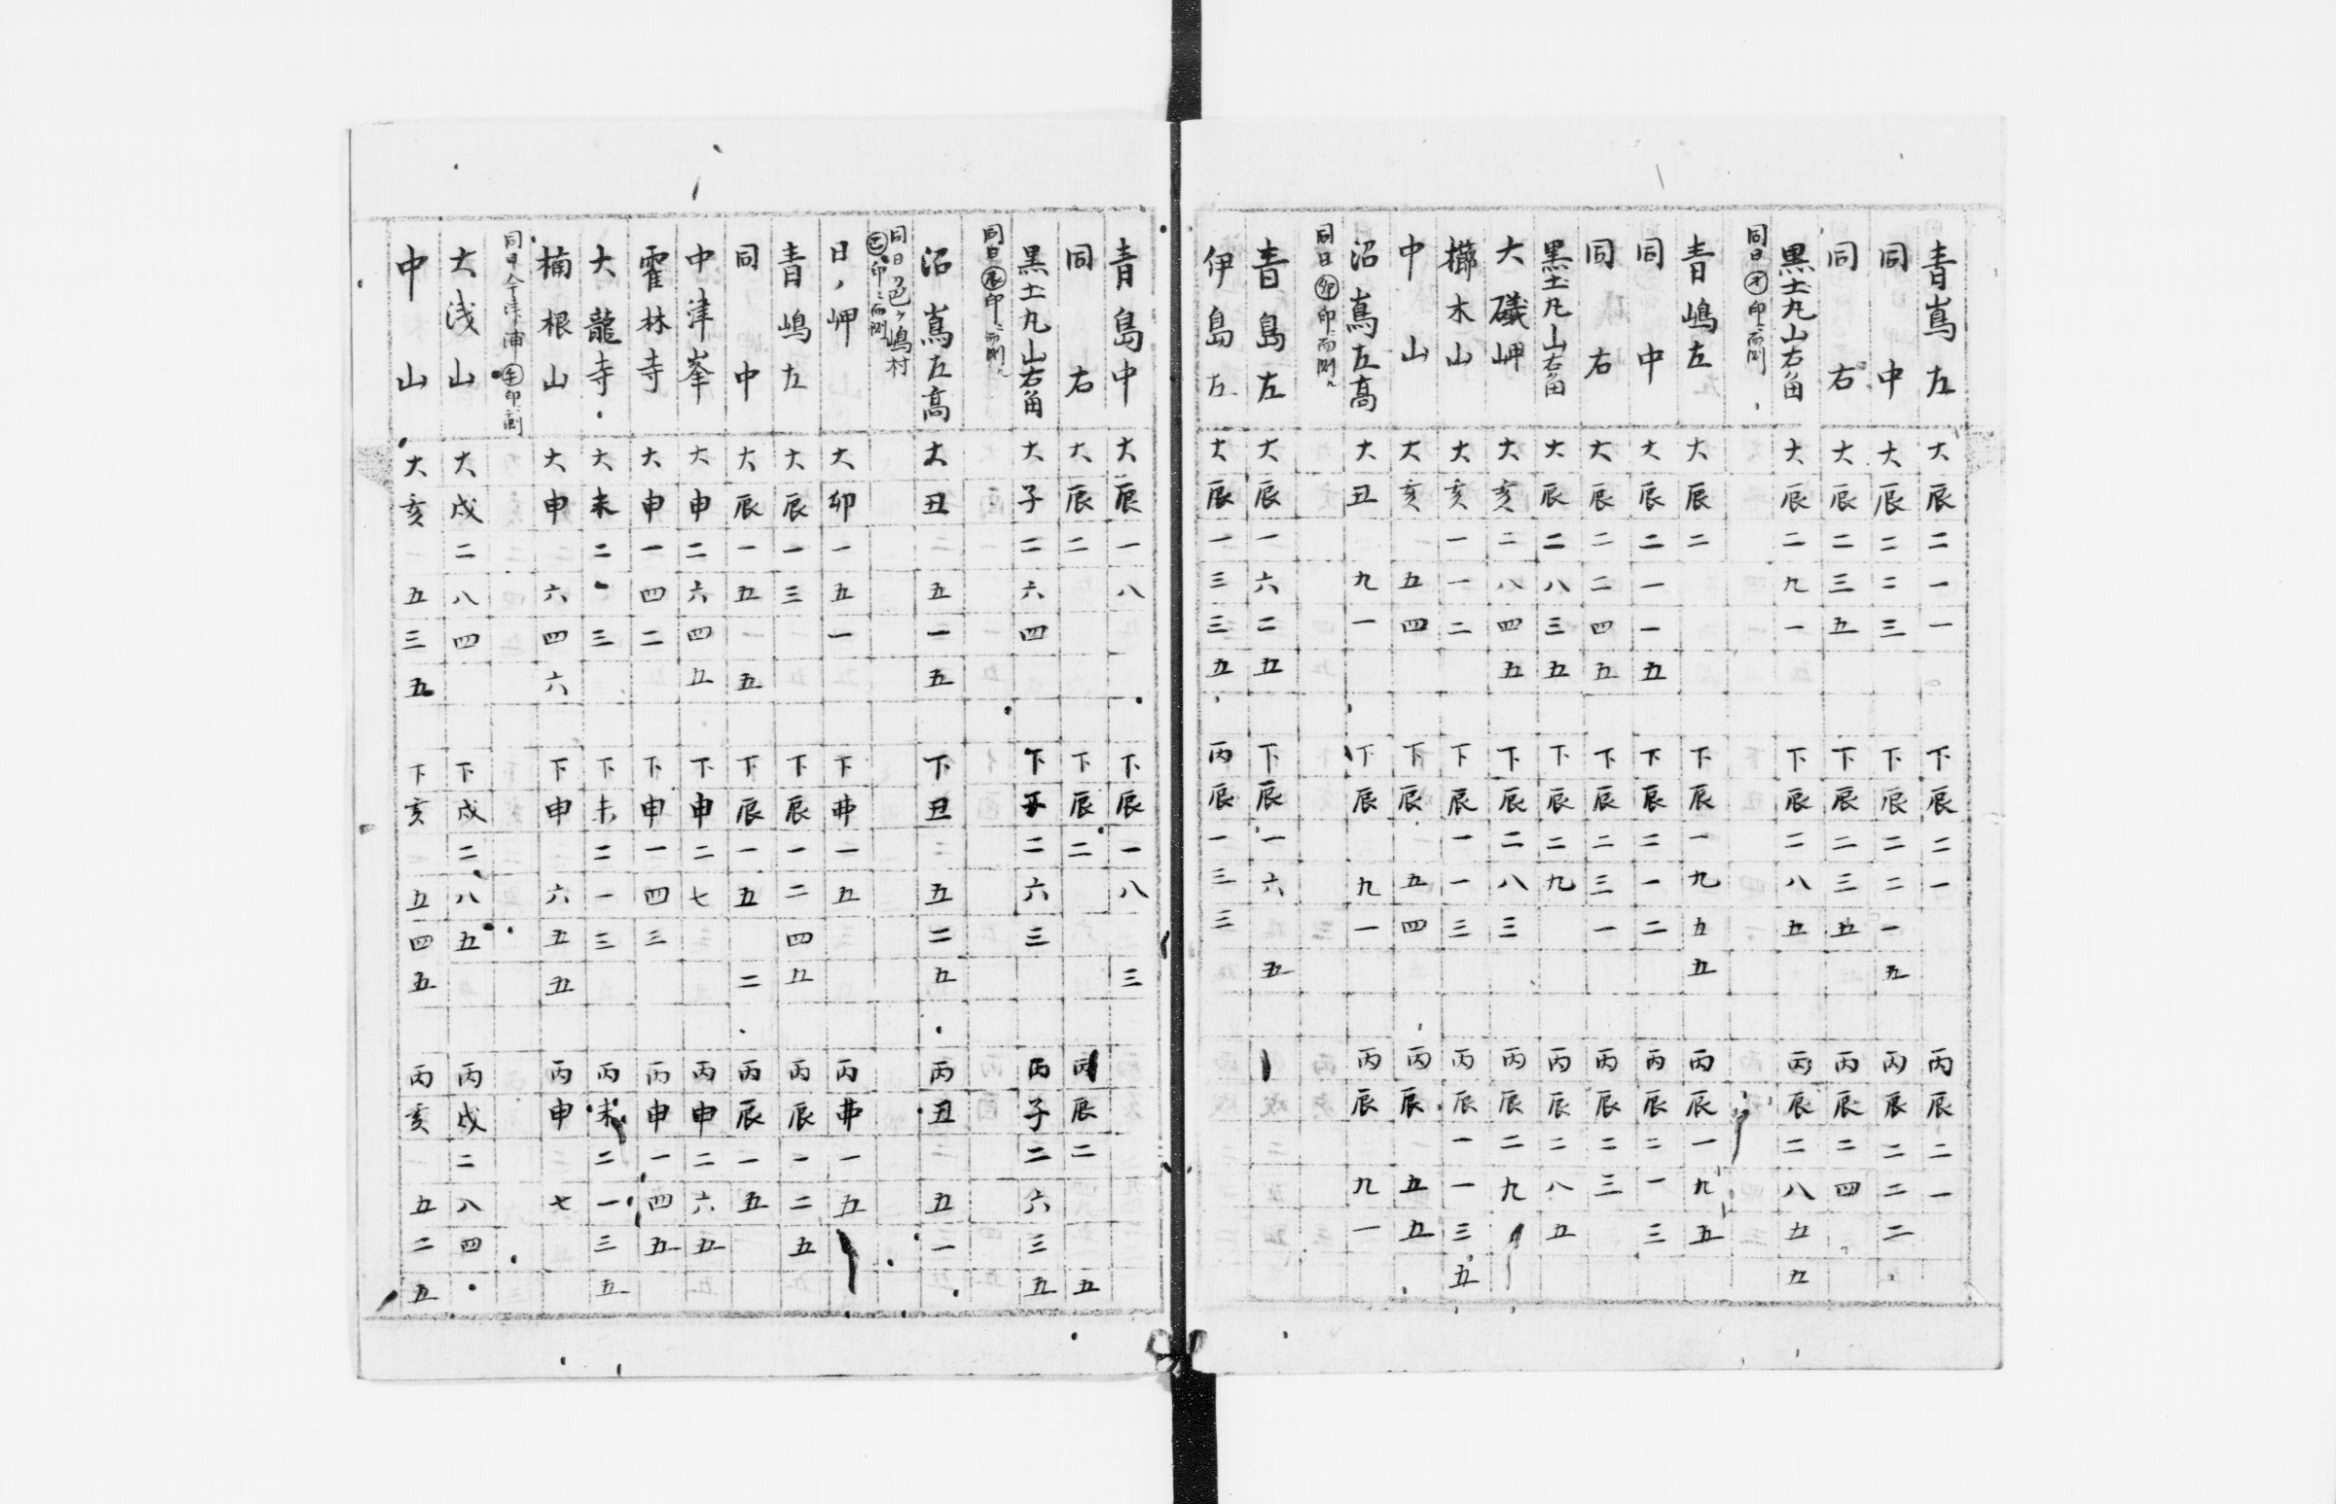 青嶌左 大辰二一一 下辰二一 丙辰二一
同中 大辰二二三 下辰二二一五 丙辰二二二
同右 大辰二三五 下辰二三五 丙辰二四
黒土丸山右角 大辰二九一 下辰二八五 丙辰二八五五
同日 印ニ而測
青嶋左 大辰二 下辰一九五五 丙辰一九五
同中 大辰二一一五 下辰二一二 丙辰二一三
同右 大辰二二四五 下辰二三一 丙辰二三
黒土丸山右角 大辰二八三五 下辰二九 丙辰二八五
大礒岬 大亥二八四五 下辰二八三 丙辰二九
櫛木山 大亥一一二 下辰一一三 丙辰一一三五
中山 大亥五四 下辰五四 丙辰五五
沼嶌左高 大丑九一 下辰九一 丙辰九一
同日卯印ニ而測ル
青島左 大辰一六二五 下辰一六五
伊島左 大辰一三三五 丙辰一三三
青島中 大辰一八 下辰一八三
同右 大辰二 下辰二 丙辰二五
黒土丸山右角 大子二六四 下子二六三 丙子二六三五
同日辰印ニ而測ル
沼嶌左高 大丑五一五 下丑五二五 丙丑五一
同日邑ヶ嶋村
巳印ニ而測
日ノ岬 大卯一五一 下丗一五 丙丗一五
青嶋左 大辰一三 下辰一二四五 丙辰一二五
同中 大辰一五一五 下辰一五二 丙辰一五
中津峯 大申二六四五 下申二七 丙申二六五
霍林寺 大申一四二 下申一四三 丙申一四五
大龍寺 大未二一三 下未二一三 丙未二一三五
楠根山 大申六四六 下申六五五 丙申七
同日今津浦午印測
大浅山 大戌二八四 下戌二八五 丙戌二八四
中山 大亥五三五 下亥五四五 丙亥五二五